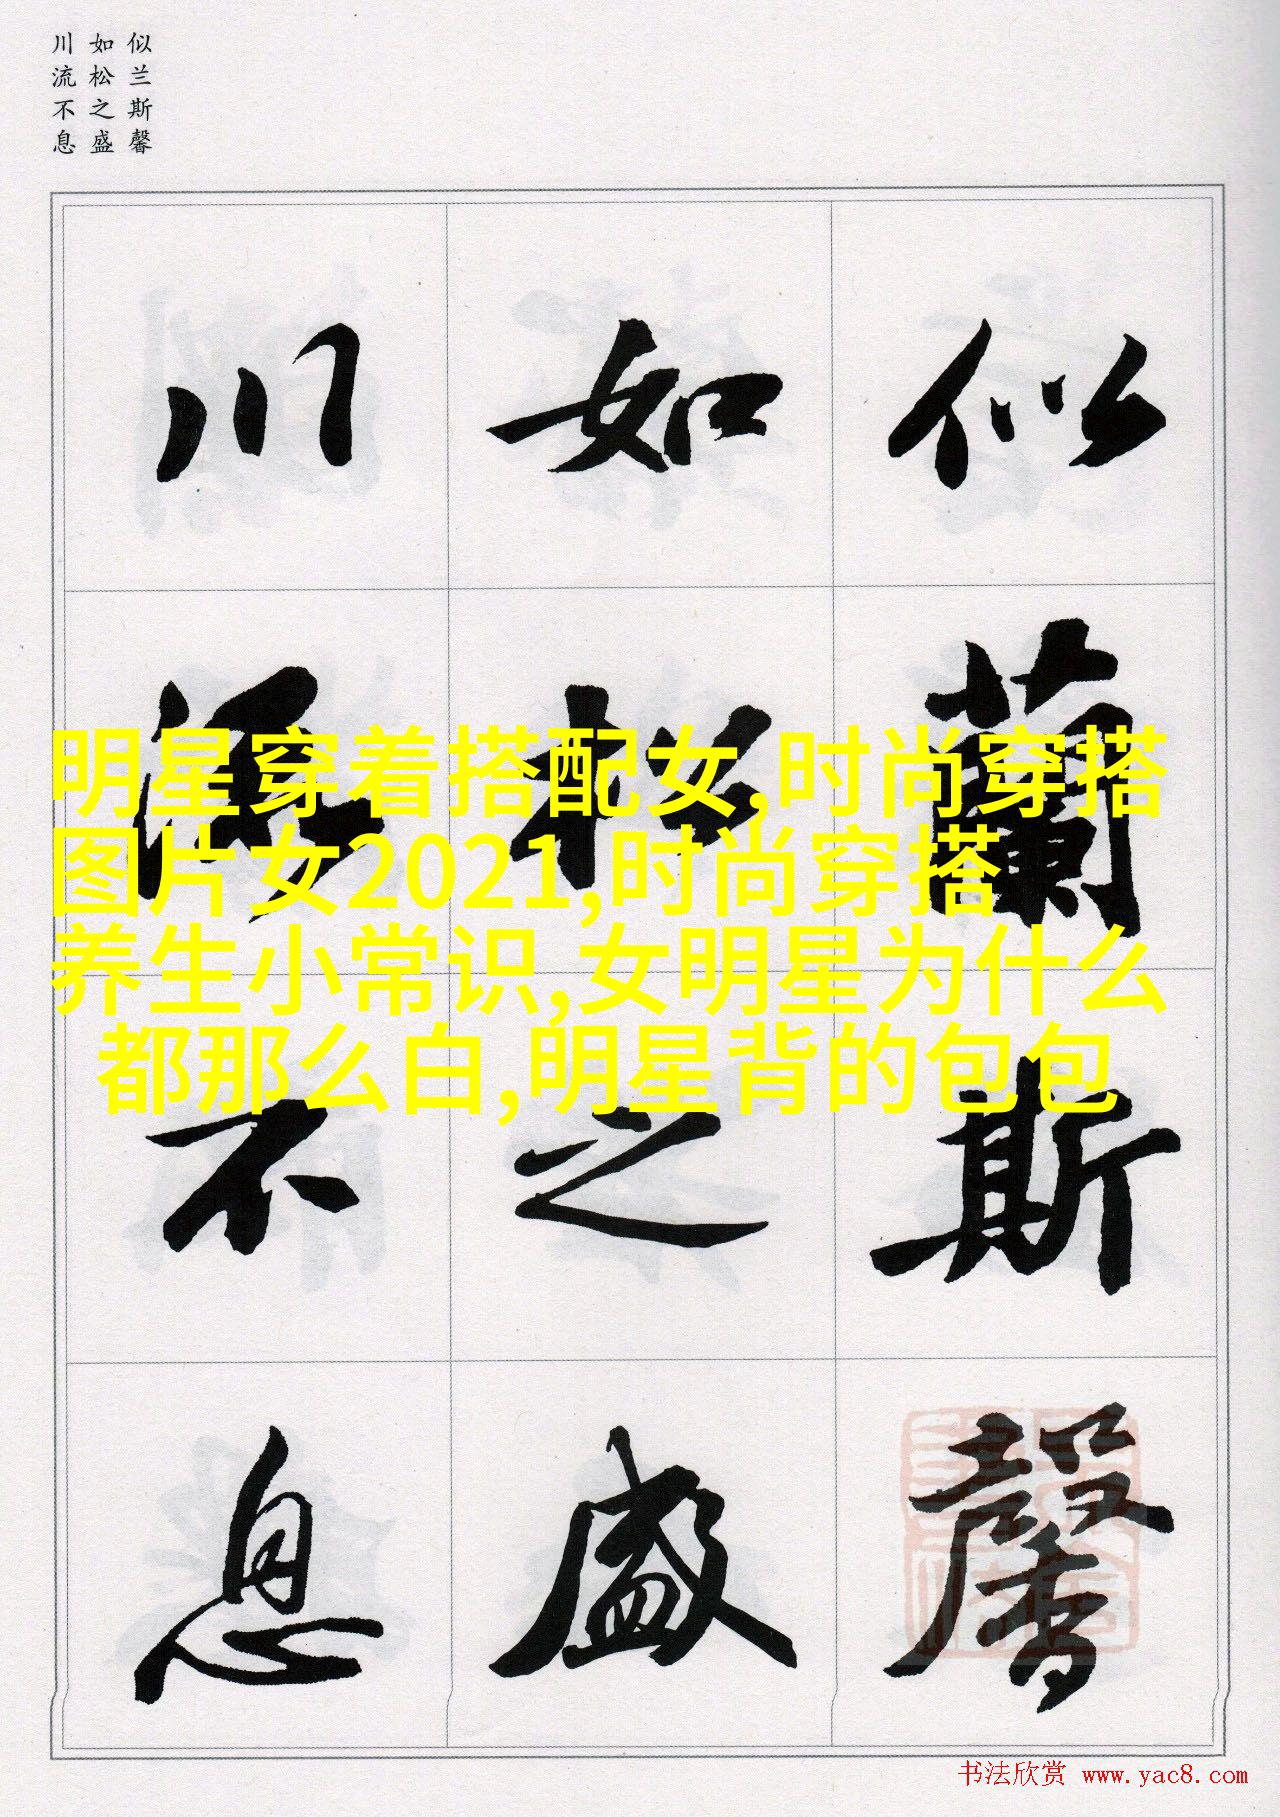 似兰斯馨
如松之盛
川流不息
似蘭斯馨
如松之盛
川流不息
明星穿着搭配女,时尚穿搭
图片女2021,时尚穿搭
养生小常识,女明星为什么
都那么白,明星背的包包
书法欣赏 www.yac8.com